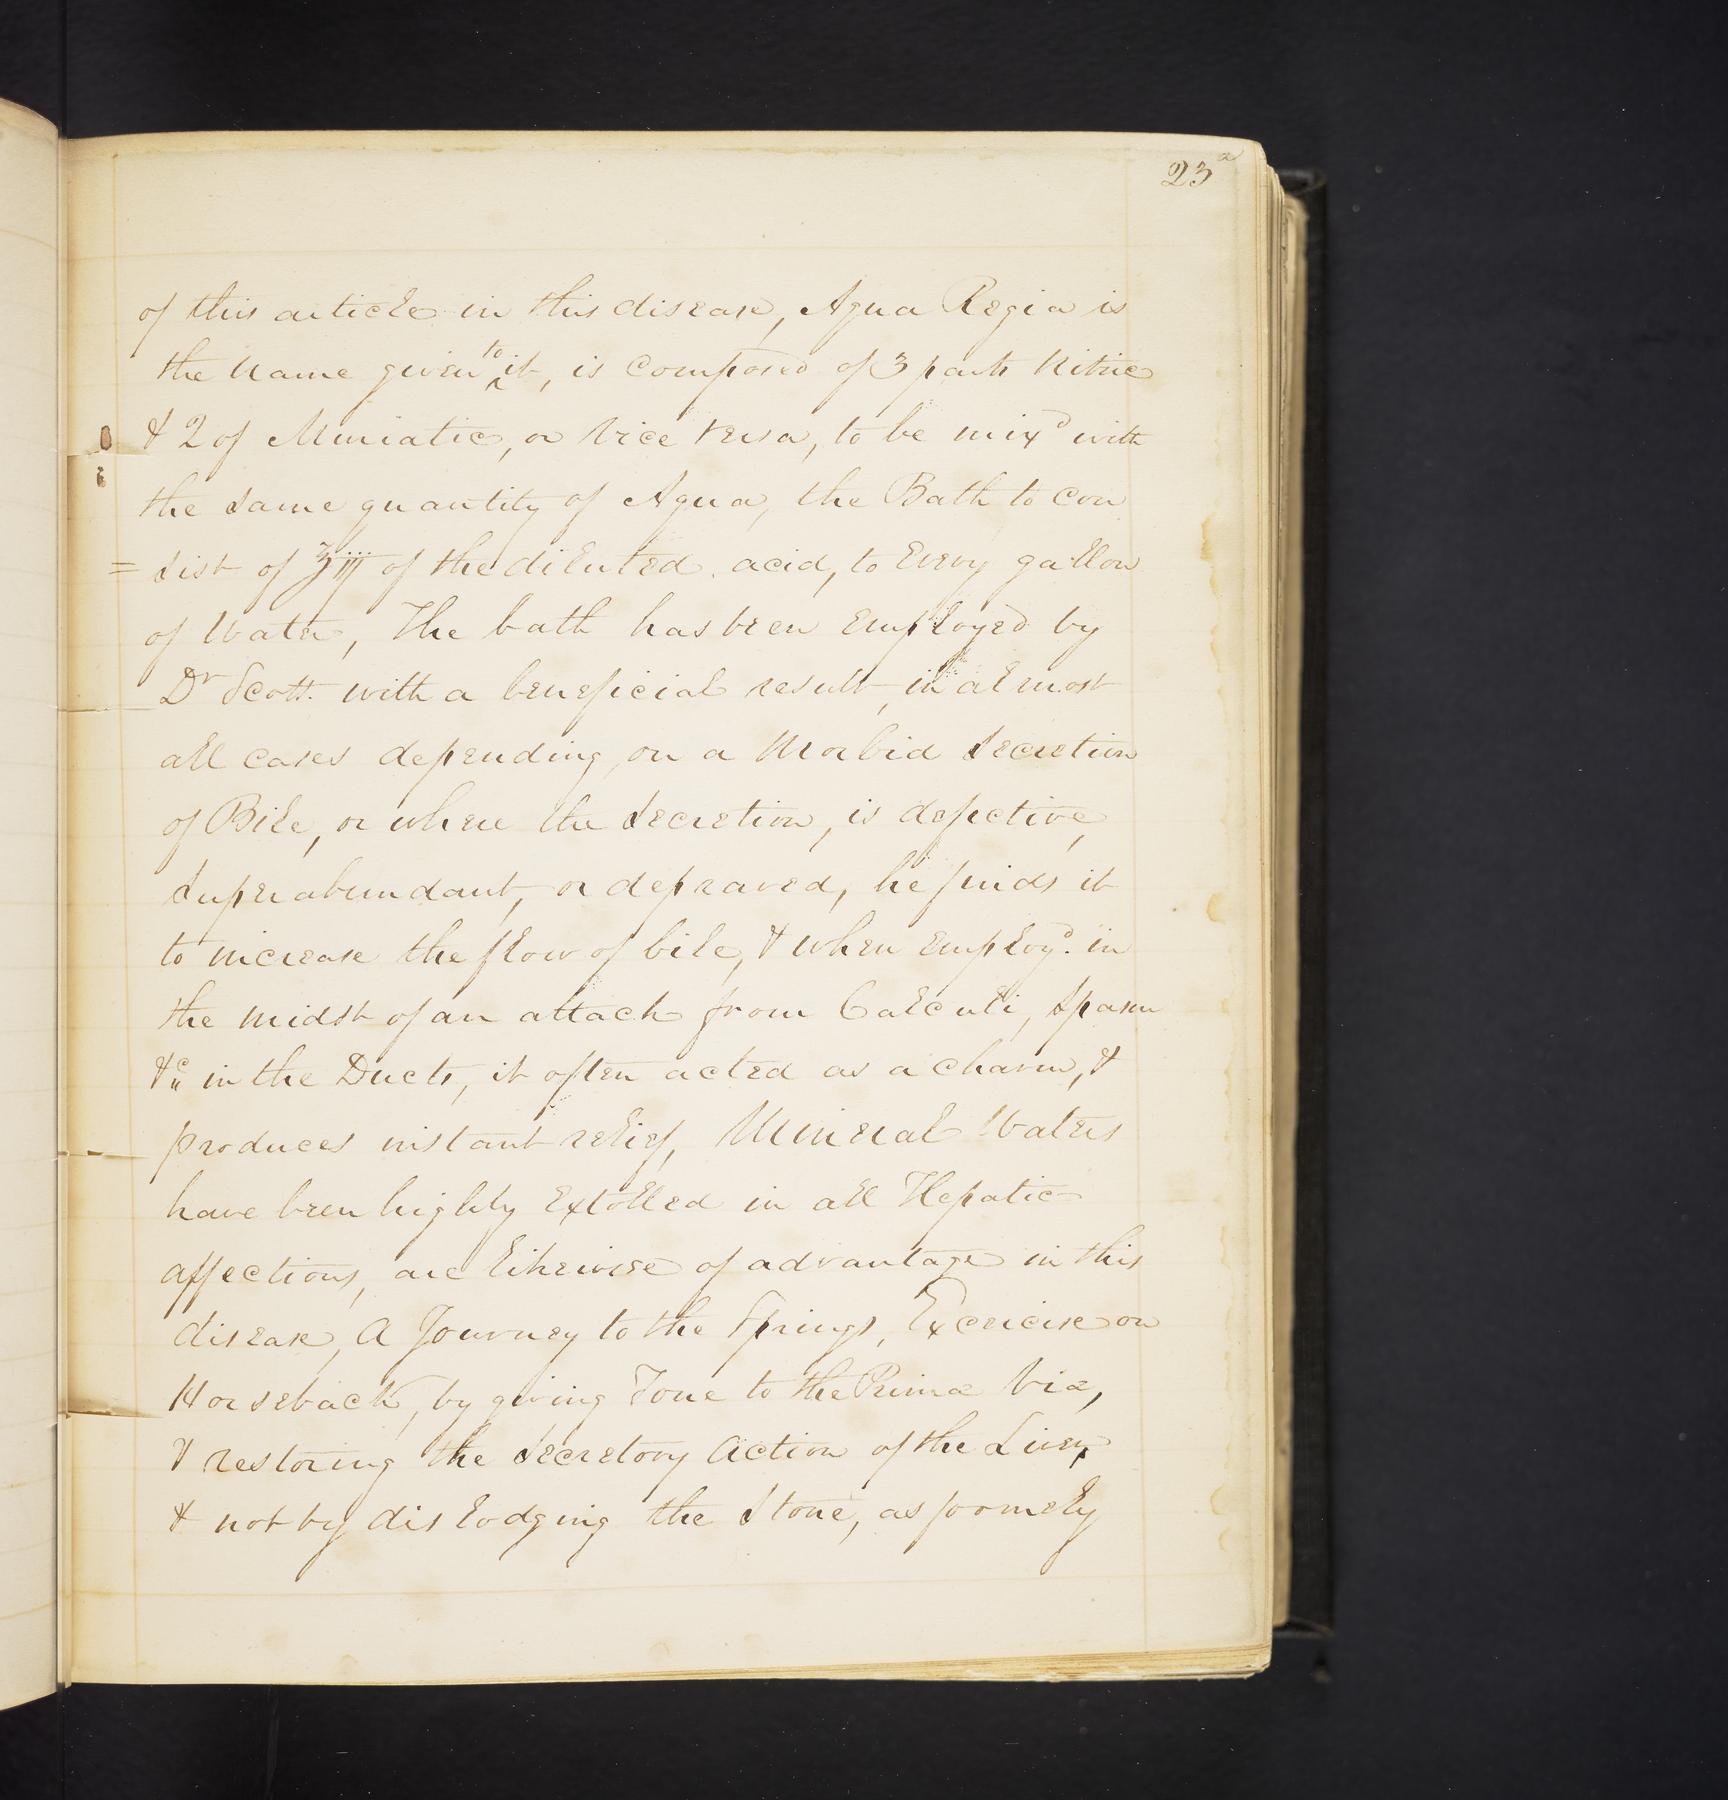 23a
of this article in this disease, Aqua Regia is
the name given to it, is composed of 3 parts Nitric
& 2 of Muriatic, or Vice Versa, to be mixd with
the same quantity of Aqua, the Bath to con
= sist of ℥iij of the diluted acid, to Every gallon
of Water, The bath has been Employed by
Dr Scott with a beneficial result, in almost
all cases depending on a Morbid Secretion
of Bile, or where the Secretion, is defective,
Superabundant, or depraved, he finds it
to increase the flow of bile, & when Employd. in
the midst of an attack from Calculi, Spasm
&c in the Ducts, it often acted as a charm, &
produces instant relief, Mineral Waters
have been highly Extolled in all Hepatic
affections, are likewise of advantage in this
disease, A Journey to the Springs, Excercise on
Horseback, by giving Tone to the Primæ Viæ,
& restoring the Secretory Action of the Liver,
& not by dislodging the Stone, as formely